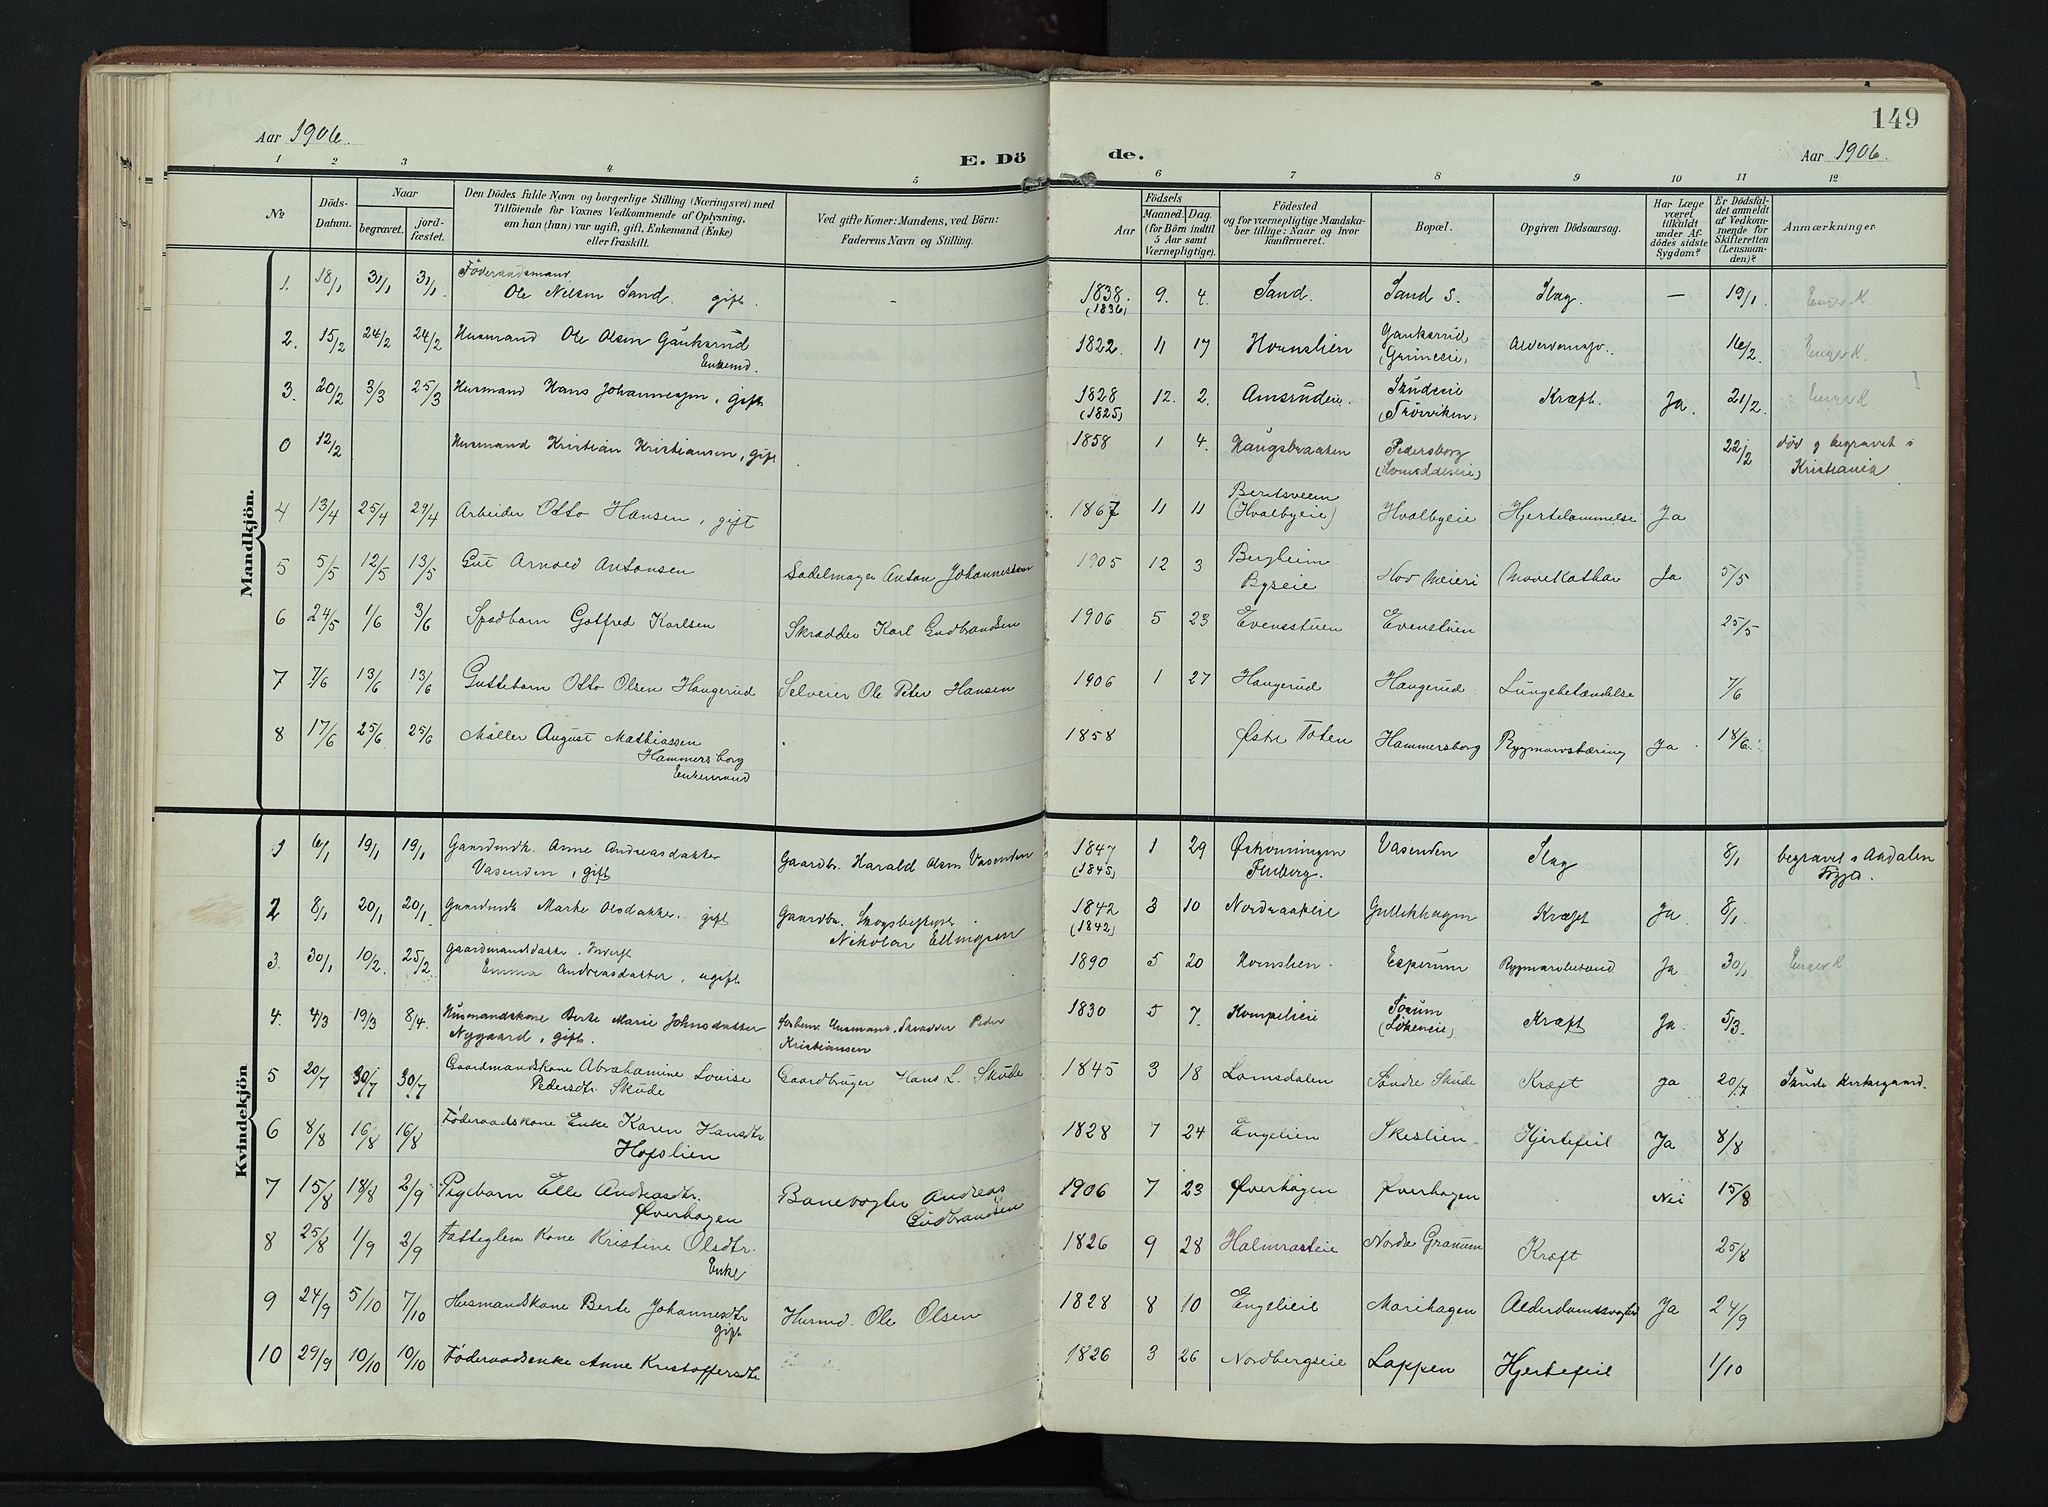 149
Aar 1906.
E. Dö
de.
Aar 1906.
1 2 3 4 5 6 7 8 9 10 11 12
№
Döds-
Datum.
Naar
begravet.
jord-
fæstet.
Den Dödes fulde Navn og borgerlige Stilling (Næringsvei) med
Tilföiende for Voxnes Vedkommende af Oplysning,
om han (hun) var ugift, gift, Enkemand (Enke)
eller fraskilt.
Ved gifte Koner: Mandens, ved Börn:
Faderens Navn og Stilling.
Födsels
Aar
Maaned. Dag.
(for Börn indtil
5 Aar samt
Værnepligtige).
Födested
og for værnepligtige Mandska-
ber tillige: Naar og hvor
konfirmeret.
Bopæl.
Opgiven Dödsaarsag.
Har Læge
været
tilkaldt
under Af-
dödes sidste
Sygdom?
Er Dödsfal-
det anmeldt
af Vedkom-
mende for
Skifteretten
(Lensman-
den)?
Anmærkninger
Mandkjön.
1. 18/1 31/1 31/1 Föderaadsmand
Ole Nilsen Sand. gift. - 1838. 9. 4. Sand. Sand S. Slag. — 19/1. Enger K.
(1836)
2. 15/2 24/2 24/2 Husmand Ole Olsen Gaukerud
Enkemd. 1822. 11 17 Hovnslien Gaukerud 16/2. Enger K.
3. 20/2 3/3 25/3 Husmand Hans Johannesen, gift 1828 12. 2. Amsrudeie. Skudeie Kræft. Ja. 21/2. Enger K
(1825)
0 12/2 Husmand Kristian Kristiansen, gift 1858 1 4. Haugsbraaten Pedersborg 22/2 død g begravet i
Kristiania
4 13/4 25/4 29/4 Arbeider Otto Hansen, gift 1867 11 11 (Hvalbyeie) Hvalbyeie Hjertelammelse Ja
5 5/5 12/5 13/5 Gut Arnold Antonsen Sadelmager Anton Johannessen 1905 12 3 Bergheim
Byseie Hov Meieri Mavekathar Ja 5/5
6 24/5 1/6 3/6 Spædbarn Gotfred Karlsen Skrædder Karl Gudbrandsen 1906 5 23 Evensstuen Evenstuen 25/5
7 7/6 13/6 13/6 Guttebarn Otto Olsen Haugerud Selveier Ole Peter Hansen 1906 1 27 Haugerud Haugerud Lungebetændelse 7/6
8 17/6 25/6 25/6 Møller August Mathiassen
Hammersborg
Enkemand 1858 Østre Toten Hammersborg Rygmarvstæring Ja 18/6
Kvindekjön
1 6/1 19/1 19/1 Gaardmdk. Anne Andreasdatter
Vasenden, gift Gaardbr. Harald Olsen Vasenden 1847 1 29 Østvoningen
(1845) Finberg. Vasenden Slag 8/1 begravet i Aadalen
2 8/1 20/1 20/1 Gaardmdk Marte Olsdatter. gift Gaardbr. Skogsbestyrer
Nikolai Ellingsen 1842 3 10 Nordraakeie Gullikhagen Kræft Ja 8/1
(1842)
3. 30/1 10/2. 25/2 Gaardmandsdatter
Emma Andreasdatter, ugift 1890 5 20 Hovnslien. Esperum Rygmarvbetænd Ja 30/1 Enger K.
4. 4/3 19/3 8/4. Husmandskone Berte Marie Johnsdatter
Nygaard, gift. Forhenv. Husmand, Skrædder Peder
Kristiansen 1830 5 7. Kompelieie Sörum
(Lökeneie) Kræft Ja. 5/3.
5 20/7 30/7 30/7 Gaardmandskone Abrahamine Lovise
Pedersdtr. Skude Gaardbruger Hans L. Skude 1845 3 18 Lomsdalen Søndre Skude Kræft Ja 20/7 Skude Kirkegaard.
6 8/8 16/8 16/8 Föderaadskone Enke Karen Hansdtr.
Hofslien 1828 7 24 Engelien Skeslien Hjertefeil Ja 8/8
7 15/8 18/8 2/9 Pigebarn Elle Andreasdtr.
Øverhagen Banevogter Andreas
Gudbrandsen 1906 7 23 Øverhagen Øverhagen Nei 15/8
8 25/8 1/9 2/9 Fatteglem Kone Kristine Olsdtr.
Enke 1826 9 28 Halmrasteie Nordre Granum Kræft 25/8
9 24/9 5/10 7/10 Husmandskone Berte Johannesdtr
gift Husmd. Ole Olsen 1828 8 10 Engelieie Marihagen Ja 24/9
10 29/9 10/10 10/10 Föderaadsenke Anne Kristoffersdtr 1826 3 26 Nordbergseie Lappen Hjertefeil 1/10